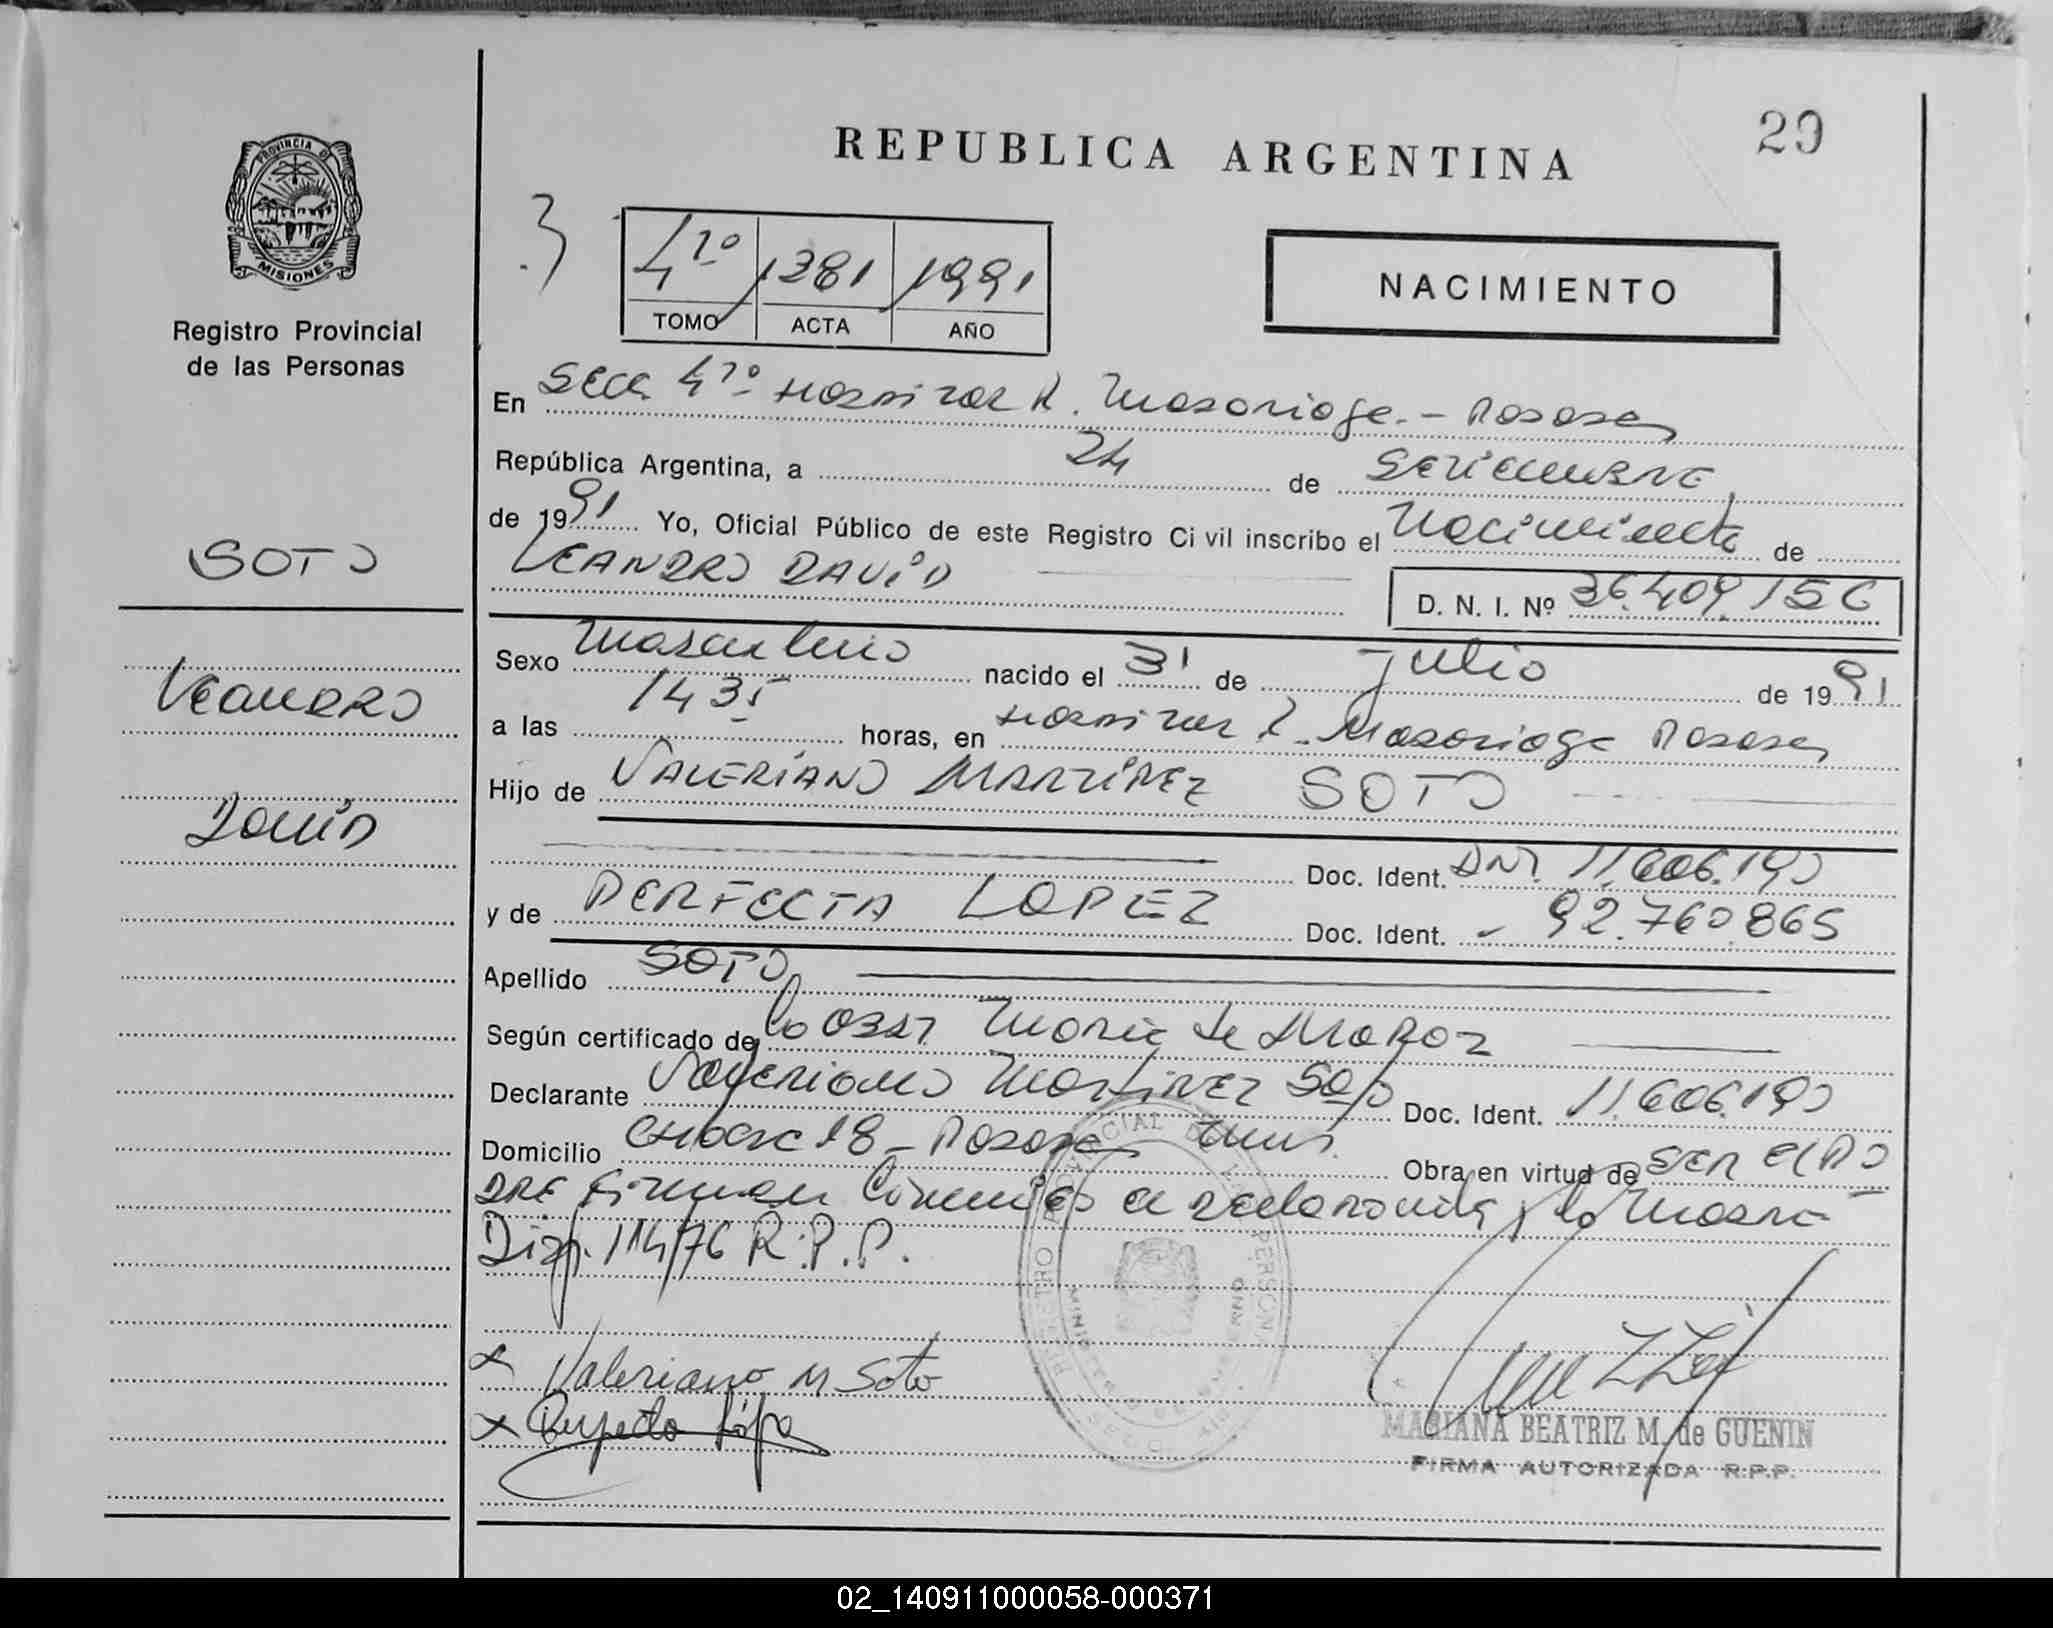 REPUBLICA ARGENTINA
29
PROVINCIA DE
MISIONES
Registro Provincial
de las Personas
3
4to 1381 1991
TOMO ACTA AÑO
NACIMIENTO
En Secc. 4to Hospital R. Madariaga - Posadas
República Argentina, a 24 de Setiembre
de 1991 Yo, Oficial Público de este Registro Civil inscribo el Nacimiento de
LEANDRO DAVID
D. N. I. Nº 36.409.156
SOTO
Leandro
David
Sexo Masculino nacido el 31 de Julio de 1991
a las 1435 horas, en Hospital R. Madariaga Posadas
Hijo de VALERIANO MARTINEZ SOTO
Doc. Ident. DNI. 11.606.190
y de PERFECTA LOPEZ Doc. Ident. - 92.760.865
Apellido SOTO
Según certificado de la Obst. Maria de
Declarante Valeriano Martinez Soto Doc. Ident. 11.606.190
Domicilio 18 - Posadas Mnes. Obra en virtud de ser el pa
dre firman el declarante y la madre
Disp. 114/76 R.P.P.
REGISTRO PROVINCIAL DE LAS PERSONAS
x Valeriano M Soto
x Perfecta López
MARIANA BEATRIZ M. de GUENIN
FIRMA AUTORIZADA R.P.P.
02_140911000058-000371